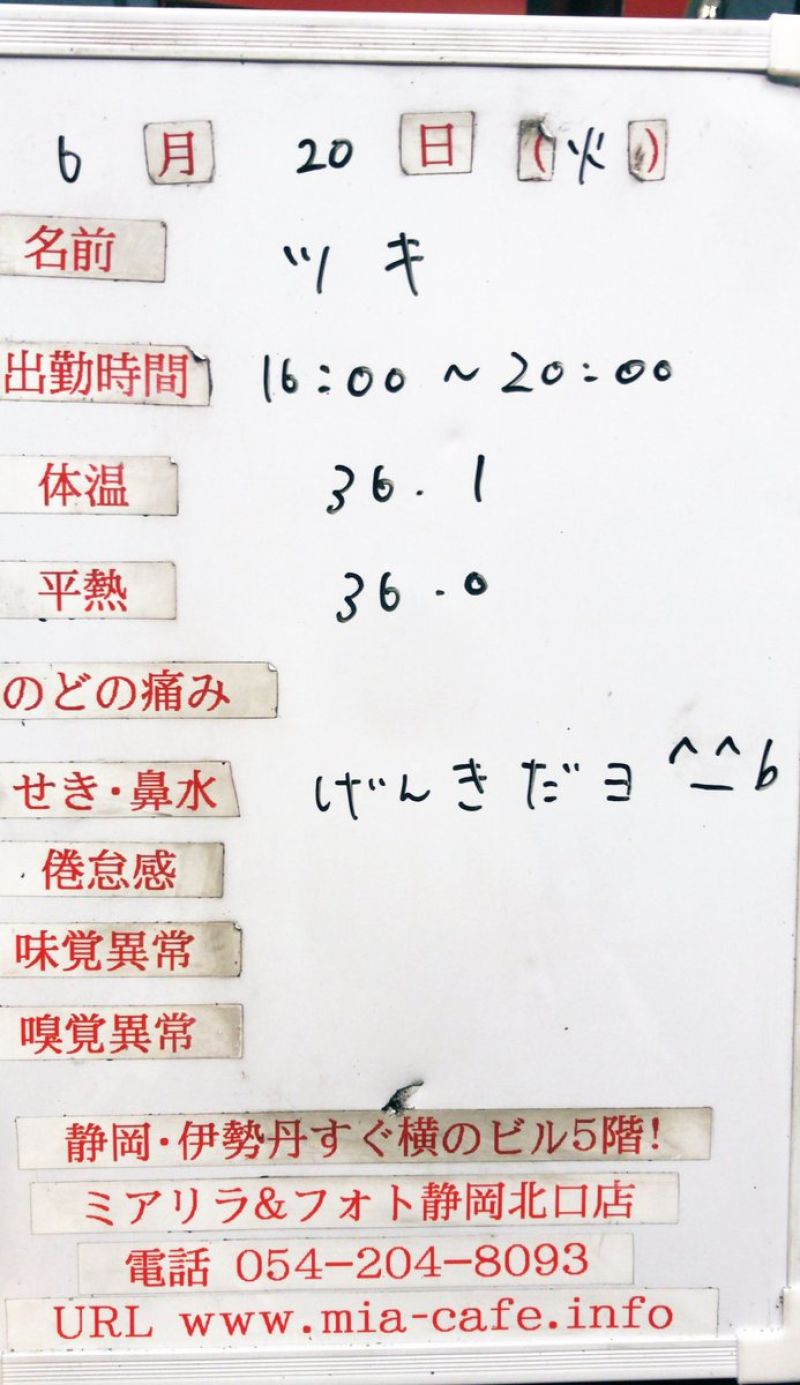 6月20日(火)
名前 ツキ
出勤時間 16:00~20:00
体温 36.1
平熱 36.0
のどの痛み
せき・鼻水 げんきだヨ ^_^b
倦怠感
味覚異常
嗅覚異常
静岡・伊勢丹すぐ横のビル5階!
ミアリラ&フォト静岡北口店
電話 054-204-8093
URL www.mia-cafe.info